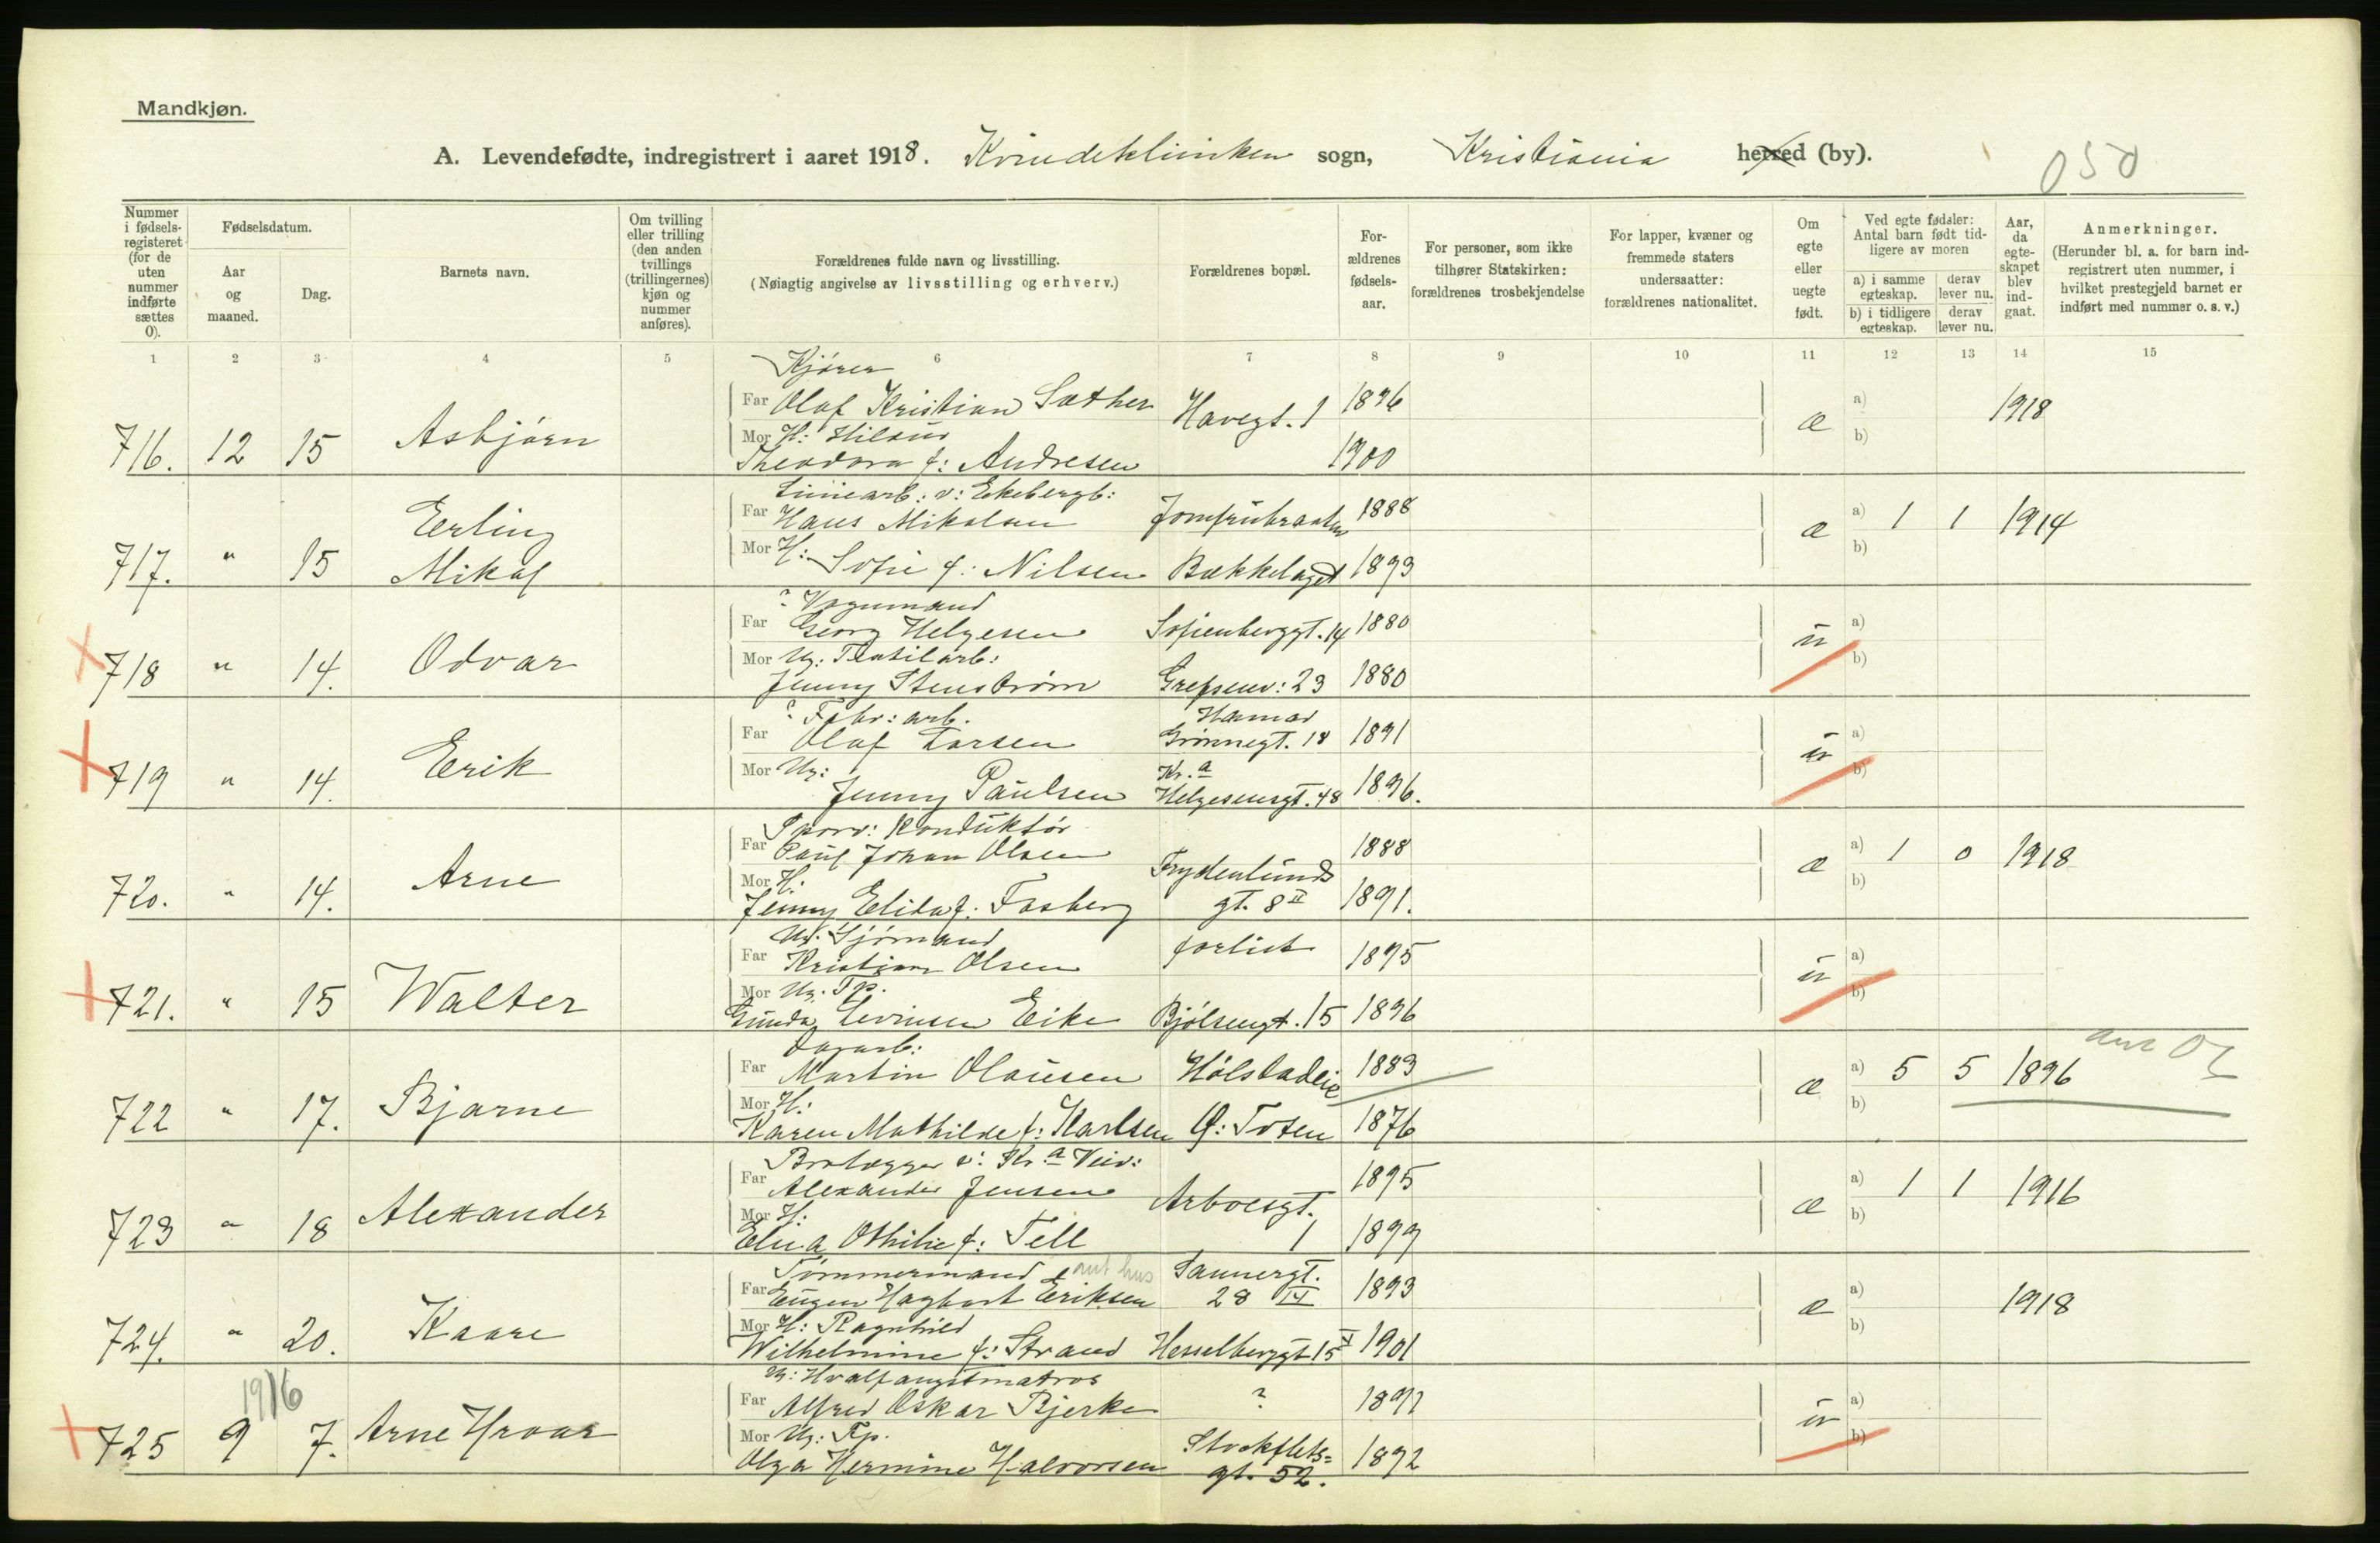 Mandkjøn.
A. Levendefødte, indregistrert i aaret 1918. Kvindeklinken sogn, Kristiania herred (by).
050
Nummer i fødselsregisteret (for de uten nummer indførte sættes 0).
Fødselsdatum.
Aar og maaned.
Dag.
Barnets navn.
Om tvilling eller trilling (den anden tvillings (trillingernes) kjøn og nummer anføres).
Forældrenes fulde navn og livsstilling.
(Nøiagtig angivelse av livsstilling og erhverv.)
Forældrenes bopæl.
Forældrenes fødselsaar.
For personer, som ikke tilhører Statskirken: forældrenes trosbekjendelse
For lapper, kvæner og fremmede staters undersaatter: forældrenes nationalitet.
Om egte eller uegte født.
Ved egte fødsler: Antal barn født tidligere av moren
a) i samme egteskap. derav lever nu.
b) i tidligere egteskap. derav lever nu.
Aar, da egteskapet blev indgaat.
Anmerkninger.
(Herunder bl. a. for barn indregistrert uten nummer, i hvilket prestegjeld barnet er indført med nummer o. s. v.)
1 2 3 4 5 6 7 8 9 10 11 12 13 14 15
Kjører
Far Olaf Kristian Sæther Havegt. 1 1896 a) 1918
716. 12 15 Asbjørn Mor H: Hildur æ b)
Theodora f: Andresen 1900
Liniearb: v: Ekebergb:
Erling Far Hans Mikalsen Jomfrubraaten 1888 a) 1 1 1914
717. " 15 Mikal Mor H: Sofie f: Nilsen Bækkelaget 1893 æ b)
? Vognmand
Far Georg Helgesen Sofienberggt. 14 1880 a)
718 " 14. Odvar Mor Ug: Textilarb: u b)
Jenny Stenstrøm Grefsenv: 23 1880
? Fabr: arb. Hamar
Far Olaf Larsen Grønnegt. 18 1891 a)
719 " 14. Erik Mor Ug: Kr.a u b)
Jenny Paulsen Helgesensgt. 48 1896.
Sporv: Konduktør
Far Paul Johan Olsen Frydenlunds 1888 a) 1 0 1918
720. " 14. Arne Mor H: æ b)
Jenny Elida f: Fosberg gt. 8 II 1891.
Ug. Sjømand
Far Kristian Olsen forlist 1895 a)
721. " 15 Walter Mor Ug. Tp. u b)
Gunda Levinsen Eike Bjølsengt. 15 1896
Dagarb:
Far Martin Olausen Hølstadeie 1883 a) 5 5 1896
722 " 17. Bjarne Mor H: æ b)
Karen Mathilde f: Karlsen Ø: Toten 1876
Brolægger v: Kr.a Veiv:
Far Alexander Jensen Arboesgt. 1895 a) 1 1 1916
723 " 18 Alexander Mor H: æ b)
Elna Othilie f: Tell 1 1899
Tømmermand ant hus Sannergt.
Far Eugen Hagbart Eriksen 28 IV 1893 a) 1918
724. " 20. Kaare Mor H: Ragnhild æ b)
Wilhelmine f: Strand Hesselberggt 15 1901
1916 U: Hvalfangstmatros
Far Alfred Oskar Bjerke ? 1891 a)
725 9 7. Arne Hroar Mor Ug: Tp. Stockflets= u b)
Olga Hermine Halvorsen gt. 52. 1892